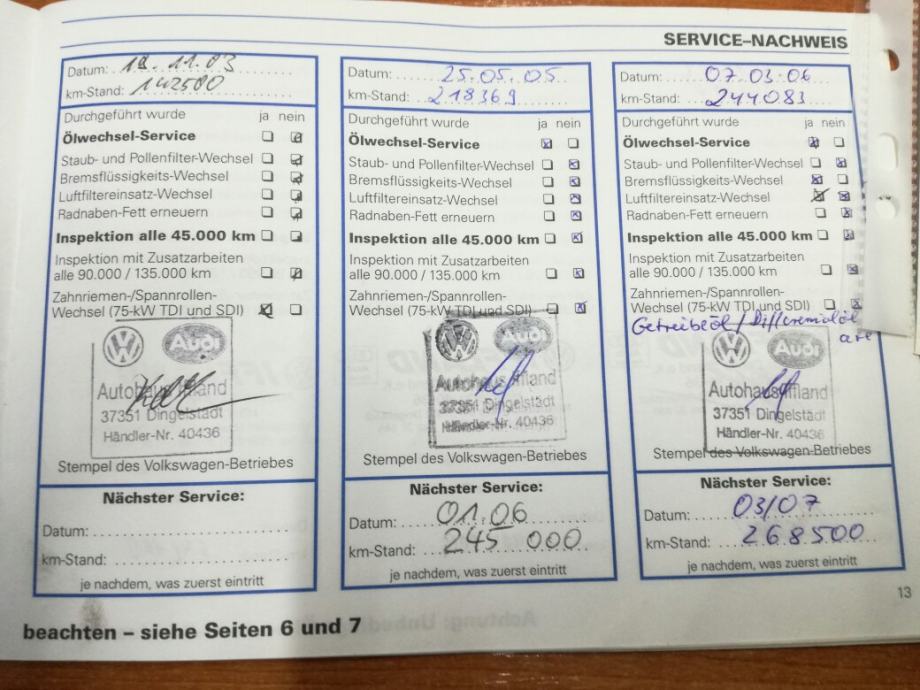 SERVICE–NACHWEIS
Datum: 18.11.03
km-Stand: 142500
Durchgeführt wurde ja nein
Ölwechsel-Service
Staub- und Pollenfilter-Wechsel
Bremsflüssigkeits-Wechsel
Luftfiltereinsatz-Wechsel
Radnaben-Fett erneuern
Inspektion alle 45.000 km
Inspektion mit Zusatzarbeiten
alle 90.000 / 135.000 km
Zahnriemen-/Spannrollen-
Wechsel (75-kW TDI und SDI)
Audi
Autohaus Iffland
37351 Dingelstädt
Händler-Nr. 40436
Stempel des Volkswagen-Betriebes
Nächster Service:
Datum:
km-Stand:
je nachdem, was zuerst eintritt
Datum: 25.05.05
km-Stand: 218369
Durchgeführt wurde ja nein
Ölwechsel-Service
Staub- und Pollenfilter-Wechsel
Bremsflüssigkeits-Wechsel
Luftfiltereinsatz-Wechsel
Radnaben-Fett erneuern
Inspektion alle 45.000 km
Inspektion mit Zusatzarbeiten
alle 90.000 / 135.000 km
Zahnriemen-/Spannrollen-
Wechsel (75-kW TDI und SDI)
Audi
Autohaus Iffland
37351 Dingelstädt
Händler-Nr. 40436
Stempel des Volkswagen-Betriebes
Nächster Service:
Datum: 01.06
km-Stand: 245 000
je nachdem, was zuerst eintritt
Datum: 07.03.06
km-Stand: 244083
Durchgeführt wurde ja nein
Ölwechsel-Service
Staub- und Pollenfilter-Wechsel
Bremsflüssigkeits-Wechsel
Luftfiltereinsatz-Wechsel
Radnaben-Fett erneuern
Inspektion alle 45.000 km
Inspektion mit Zusatzarbeiten
alle 90.000 / 135.000 km
Zahnriemen-/Spannrollen-
Wechsel (75-kW TDI und SDI)
Getreibeöl / Differenzialöl
Audi
Autohaus Iffland
37351 Dingelstädt
Händler-Nr. 40436
Stempel des Volkswagen-Betriebes
Nächster Service:
Datum: 03/07
km-Stand: 268500
je nachdem, was zuerst eintritt
13
beachten – siehe Seiten 6 und 7